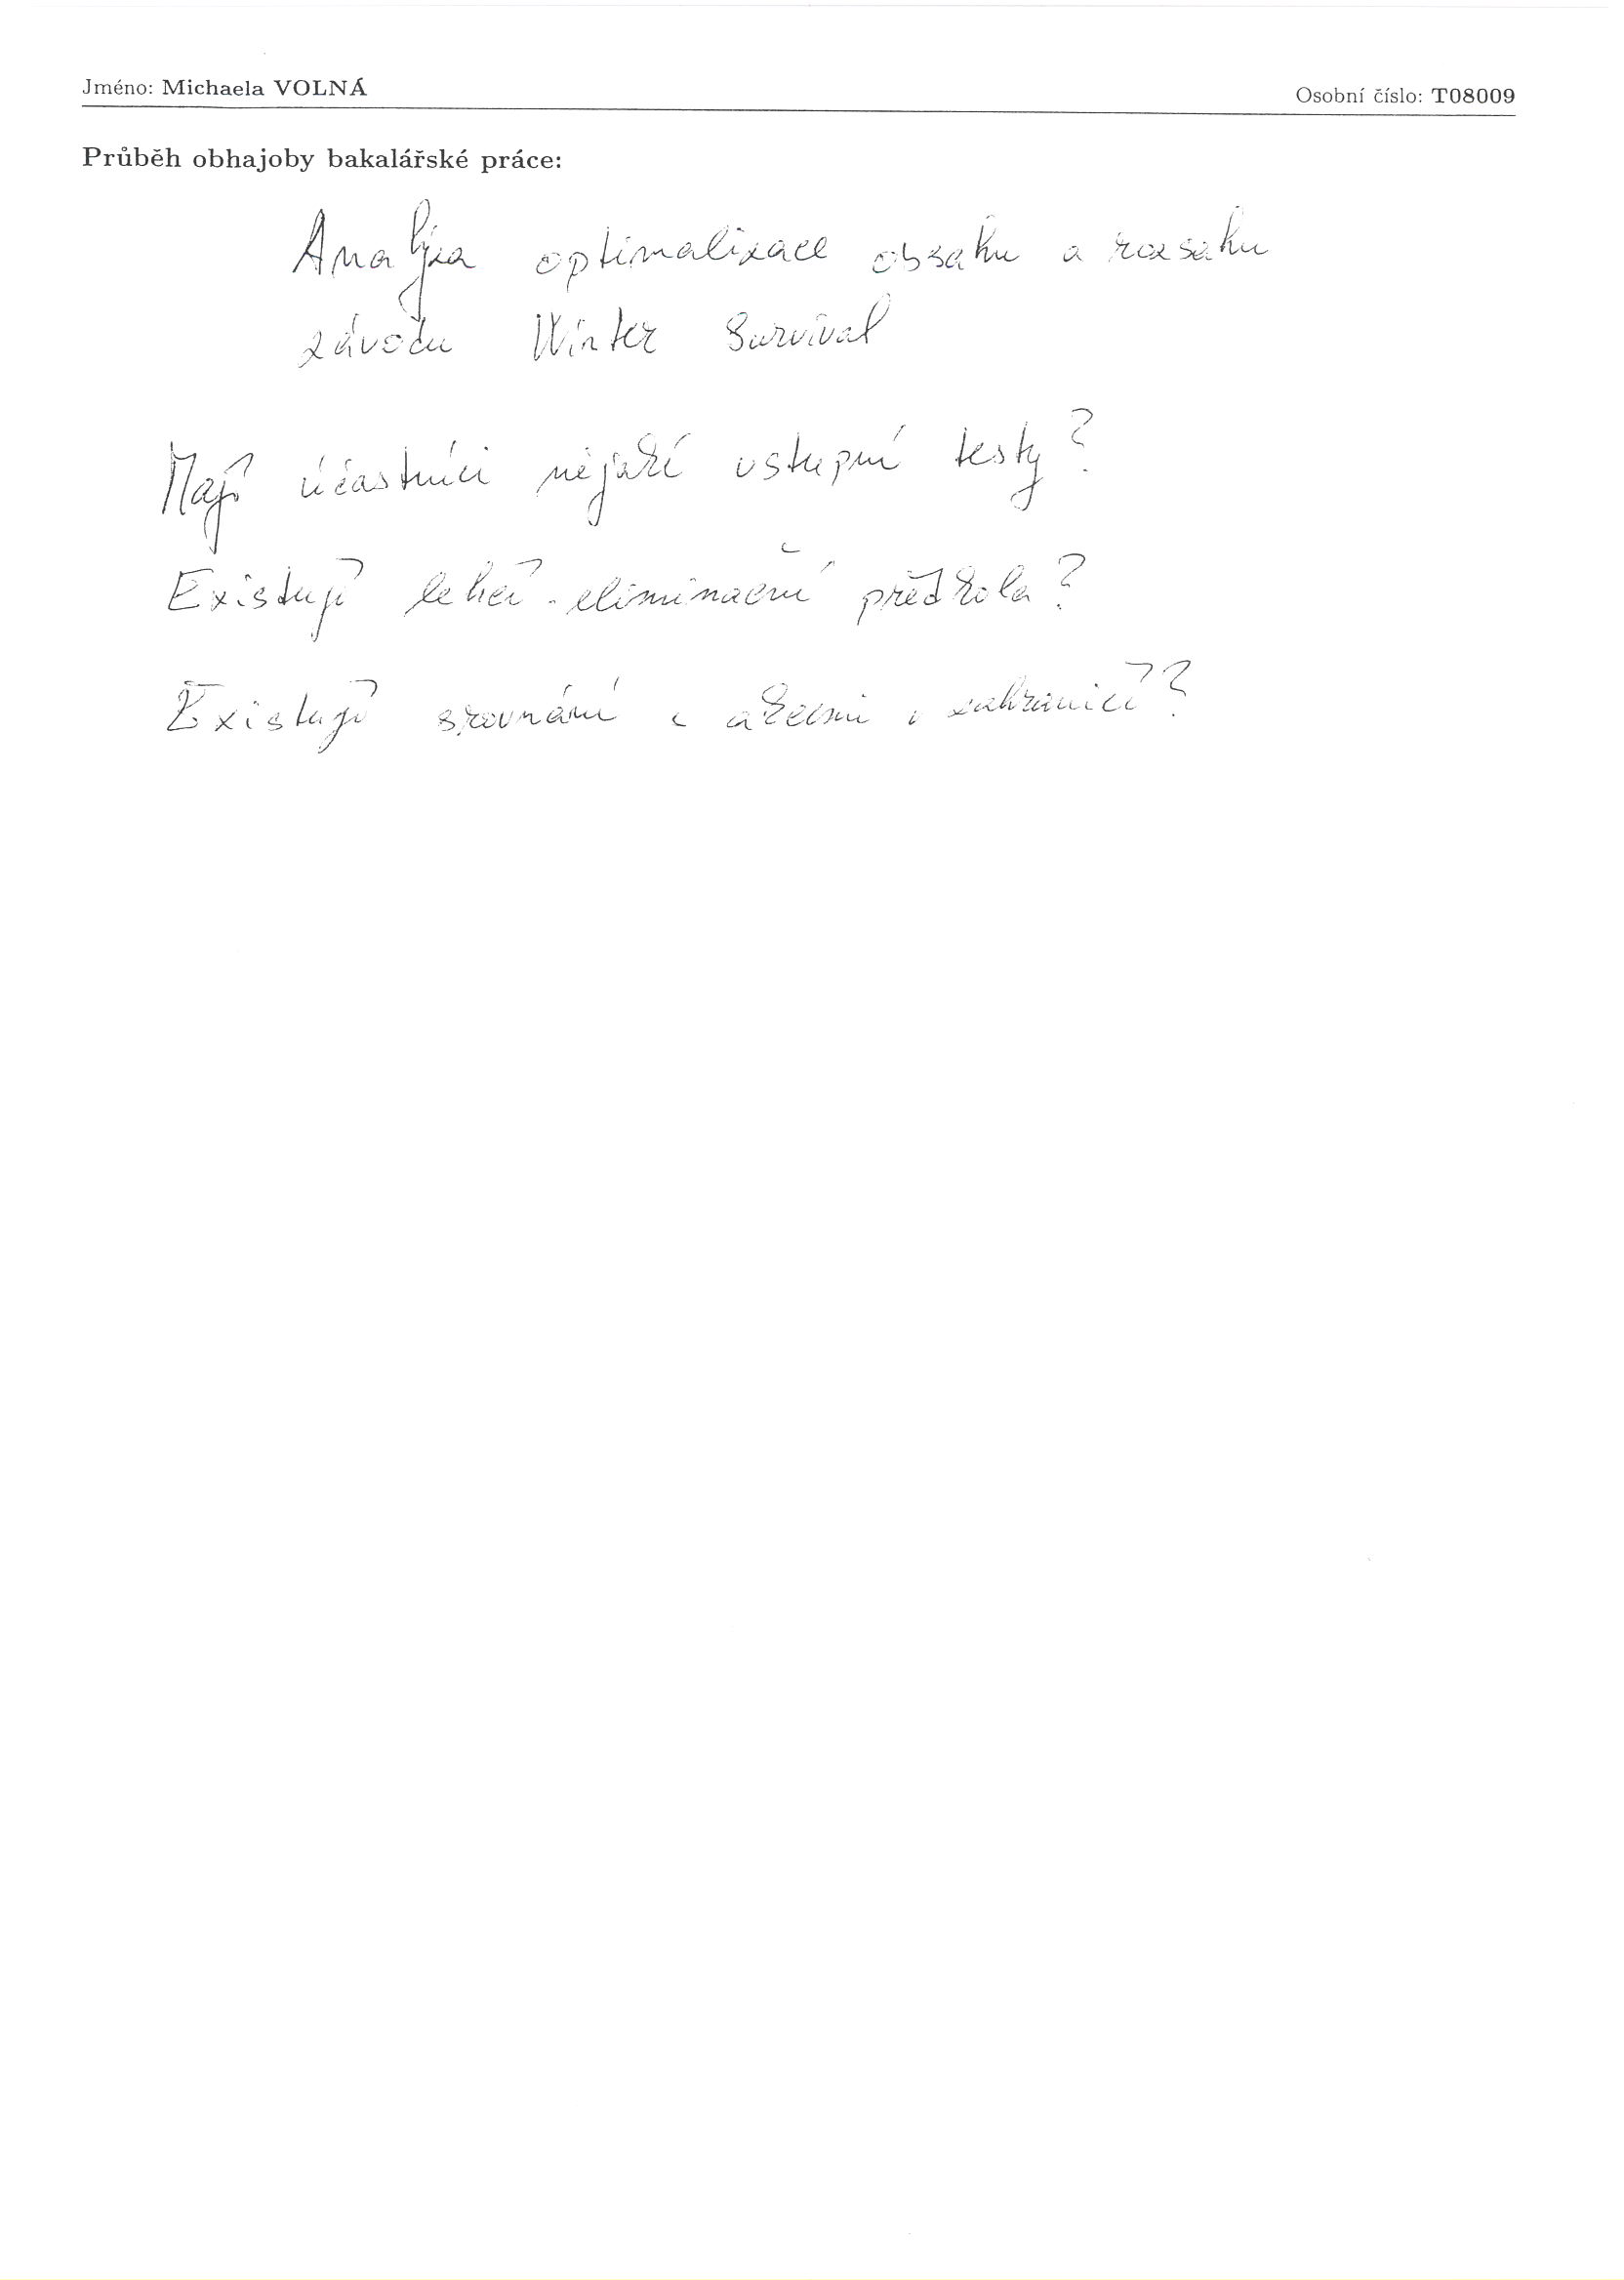 Jméno: Michaela VOLNÁ
Osobní číslo: T08009
Průběh obhajoby bakalářské práce:
Analýza optimalizace obsahu a rozsahu
závodu Winter Survival
Mají účastníci nějaké vstupní testy?
Existují lehčí eliminační předkola?
Existují srovnání s akcemi v zahraničí?